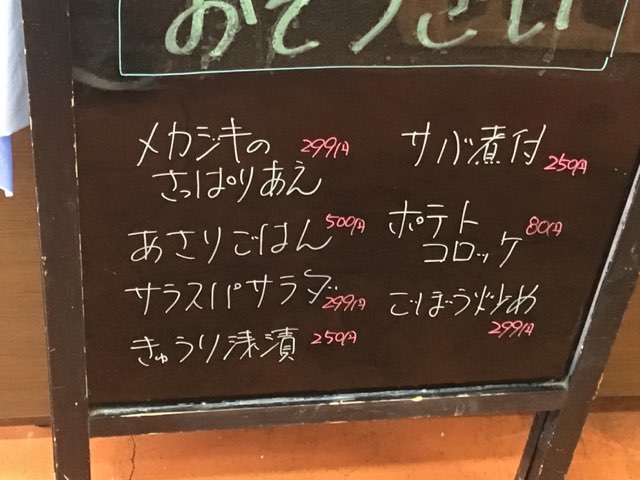 おそうざい
メカジキの 299円
さっぱりあえ
あさりごはん 500円
サラスパサラダ 299円
きゅうり浅漬 250円
サバ煮付 250円
ポテト 80円
コロッケ
ごぼう炒め
299円